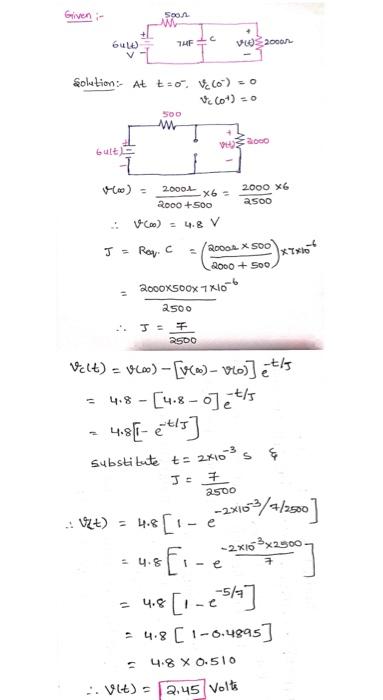 Given :-
500Ω
6u(t)
V
7μF
C
+
V(t)
2000Ω
-
Solution:- At t=0⁻, Vc(0⁻) = 0
Vc(0⁺) = 0
500
6u(t)
+
V(t)
2000
-
V(∞) = 2000Ω / 2000+500 ×6 = 2000 ×6 / 2500
∴ V(∞) = 4.8 V
J = Req. C = (2000Ω × 500 / 2000 + 500) ×7×10⁻⁶
= 2000×500×7×10⁻⁶ / 2500
∴ J = 7 / 2500
Vc(t) = V(∞) - [V(∞) - V(0)] e^-t/J
= 4.8 - [4.8 - 0] e^-t/J
= 4.8[1 - e^-t/J]
Substitute t = 2×10⁻³ s &
J = 7 / 2500
∴ V(t) = 4.8 [1 - e^-2×10⁻³/7/2500]
= 4.8 [1 - e^-2×10⁻³×2500 / 7]
= 4.8 [1 - e^-5/7]
= 4.8 [1 - 0.4895]
= 4.8 × 0.510
∴ V(t) = 2.45 Volts